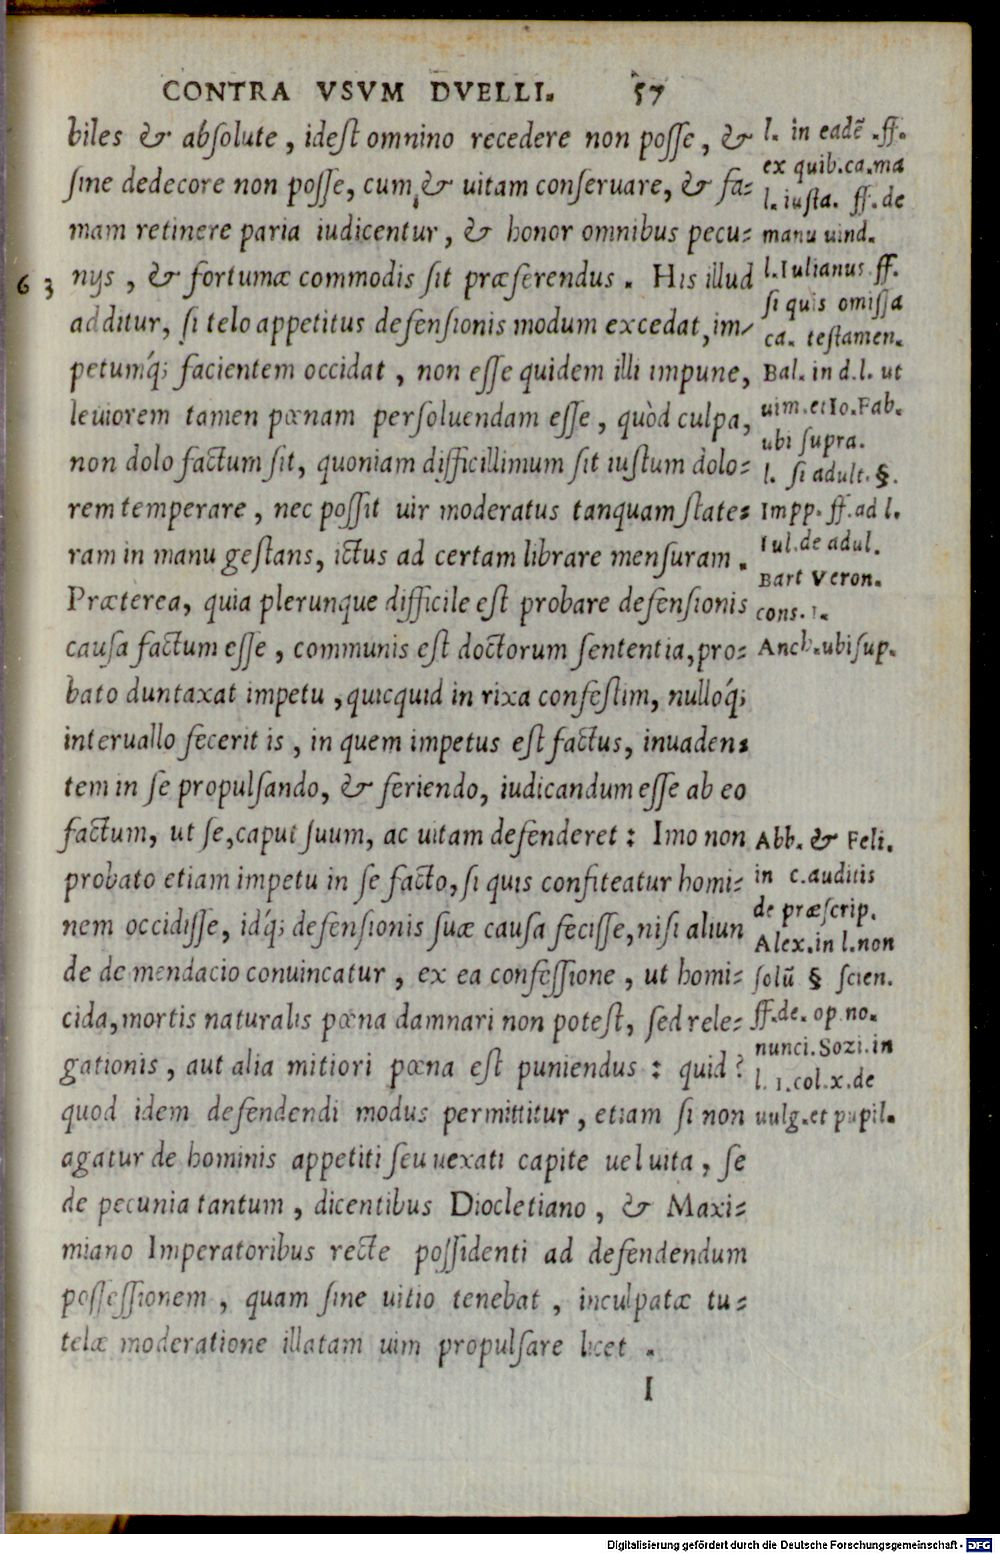 CONTRA VSVM DVELLI. 57
biles & absolute, idest omnino recedere non posse, &
sine dedecore non posse, cum & uitam conseruare, & fa-
mam retinere paria iudicentur, & honor omnibus pecu-
nijs, & fortunæ commodis sit præferendus. His illud
additur, si telo appetitus defensionis modum excedat, im-
petumq́; facientem occidat, non esse quidem illi impune,
leuiorem tamen pœnam persoluendam esse, quòd culpa,
non dolo factum sit, quoniam difficillimum sit iustum dolo-
rem temperare, nec possit uir moderatus tanquam state-
ram in manu gestans, ictus ad certam librare mensuram.
Præterea, quia plerunque difficile est probare defensionis
causa factum esse, communis est doctorum sententia, pro-
bato duntaxat impetu, quicquid in rixa confestim, nulloq́;
interuallo fecerit is, in quem impetus est factus, inuaden-
tem in se propulsando, & feriendo, iudicandum esse ab eo
factum, ut se, caput suum, ac uitam defenderet: Imo non
probato etiam impetu in se facto, si quis confiteatur homi-
nem occidisse, idq́; defensionis suæ causa fecisse, nisi aliun
de de mendacio conuincatur, ex ea confessione, ut homi-
cida, mortis naturalis pœna damnari non potest, sed rele-
gationis, aut alia mitiori pœna est puniendus: quid?
quod idem defendendi modus permittitur, etiam si non
agatur de hominis appetiti seu uexati capite uel uita, se
de pecunia tantum, dicentibus Diocletiano, & Maxi-
miano Imperatoribus recte possidenti ad defendendum
possessionem, quam sine uitio tenebat, inculpatæ tu-
telæ moderatione illatam uim propulsare licet.
I
63
l. in eadē .ff.
ex quib.ca.ma
l. iusta. ff. de
manu uind.
l. Iulianus ff.
si quis omissa
ca. testamen.
Bal. in d.l. ut
uim. et Io. Fab.
ubi supra.
l. si adult. §.
Impp. ff. ad l.
Iul. de adul.
Bart Veron.
cons. 1.
Anch. ubi sup.
Abb. & Feli.
in c. auditis
de præscrip.
Alex. in l. non
solū § scien.
ff. de. op no.
nunci. Sozi. in
l. 1. col. x. de
uulg. et pupil.
Digitalisierung gefördert durch die Deutsche Forschungsgemeinschaft - DFG